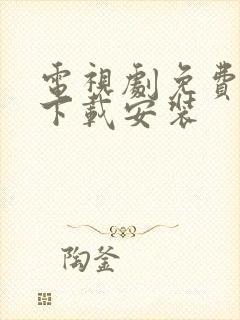 電視劇免費
下載安裝
陶釜